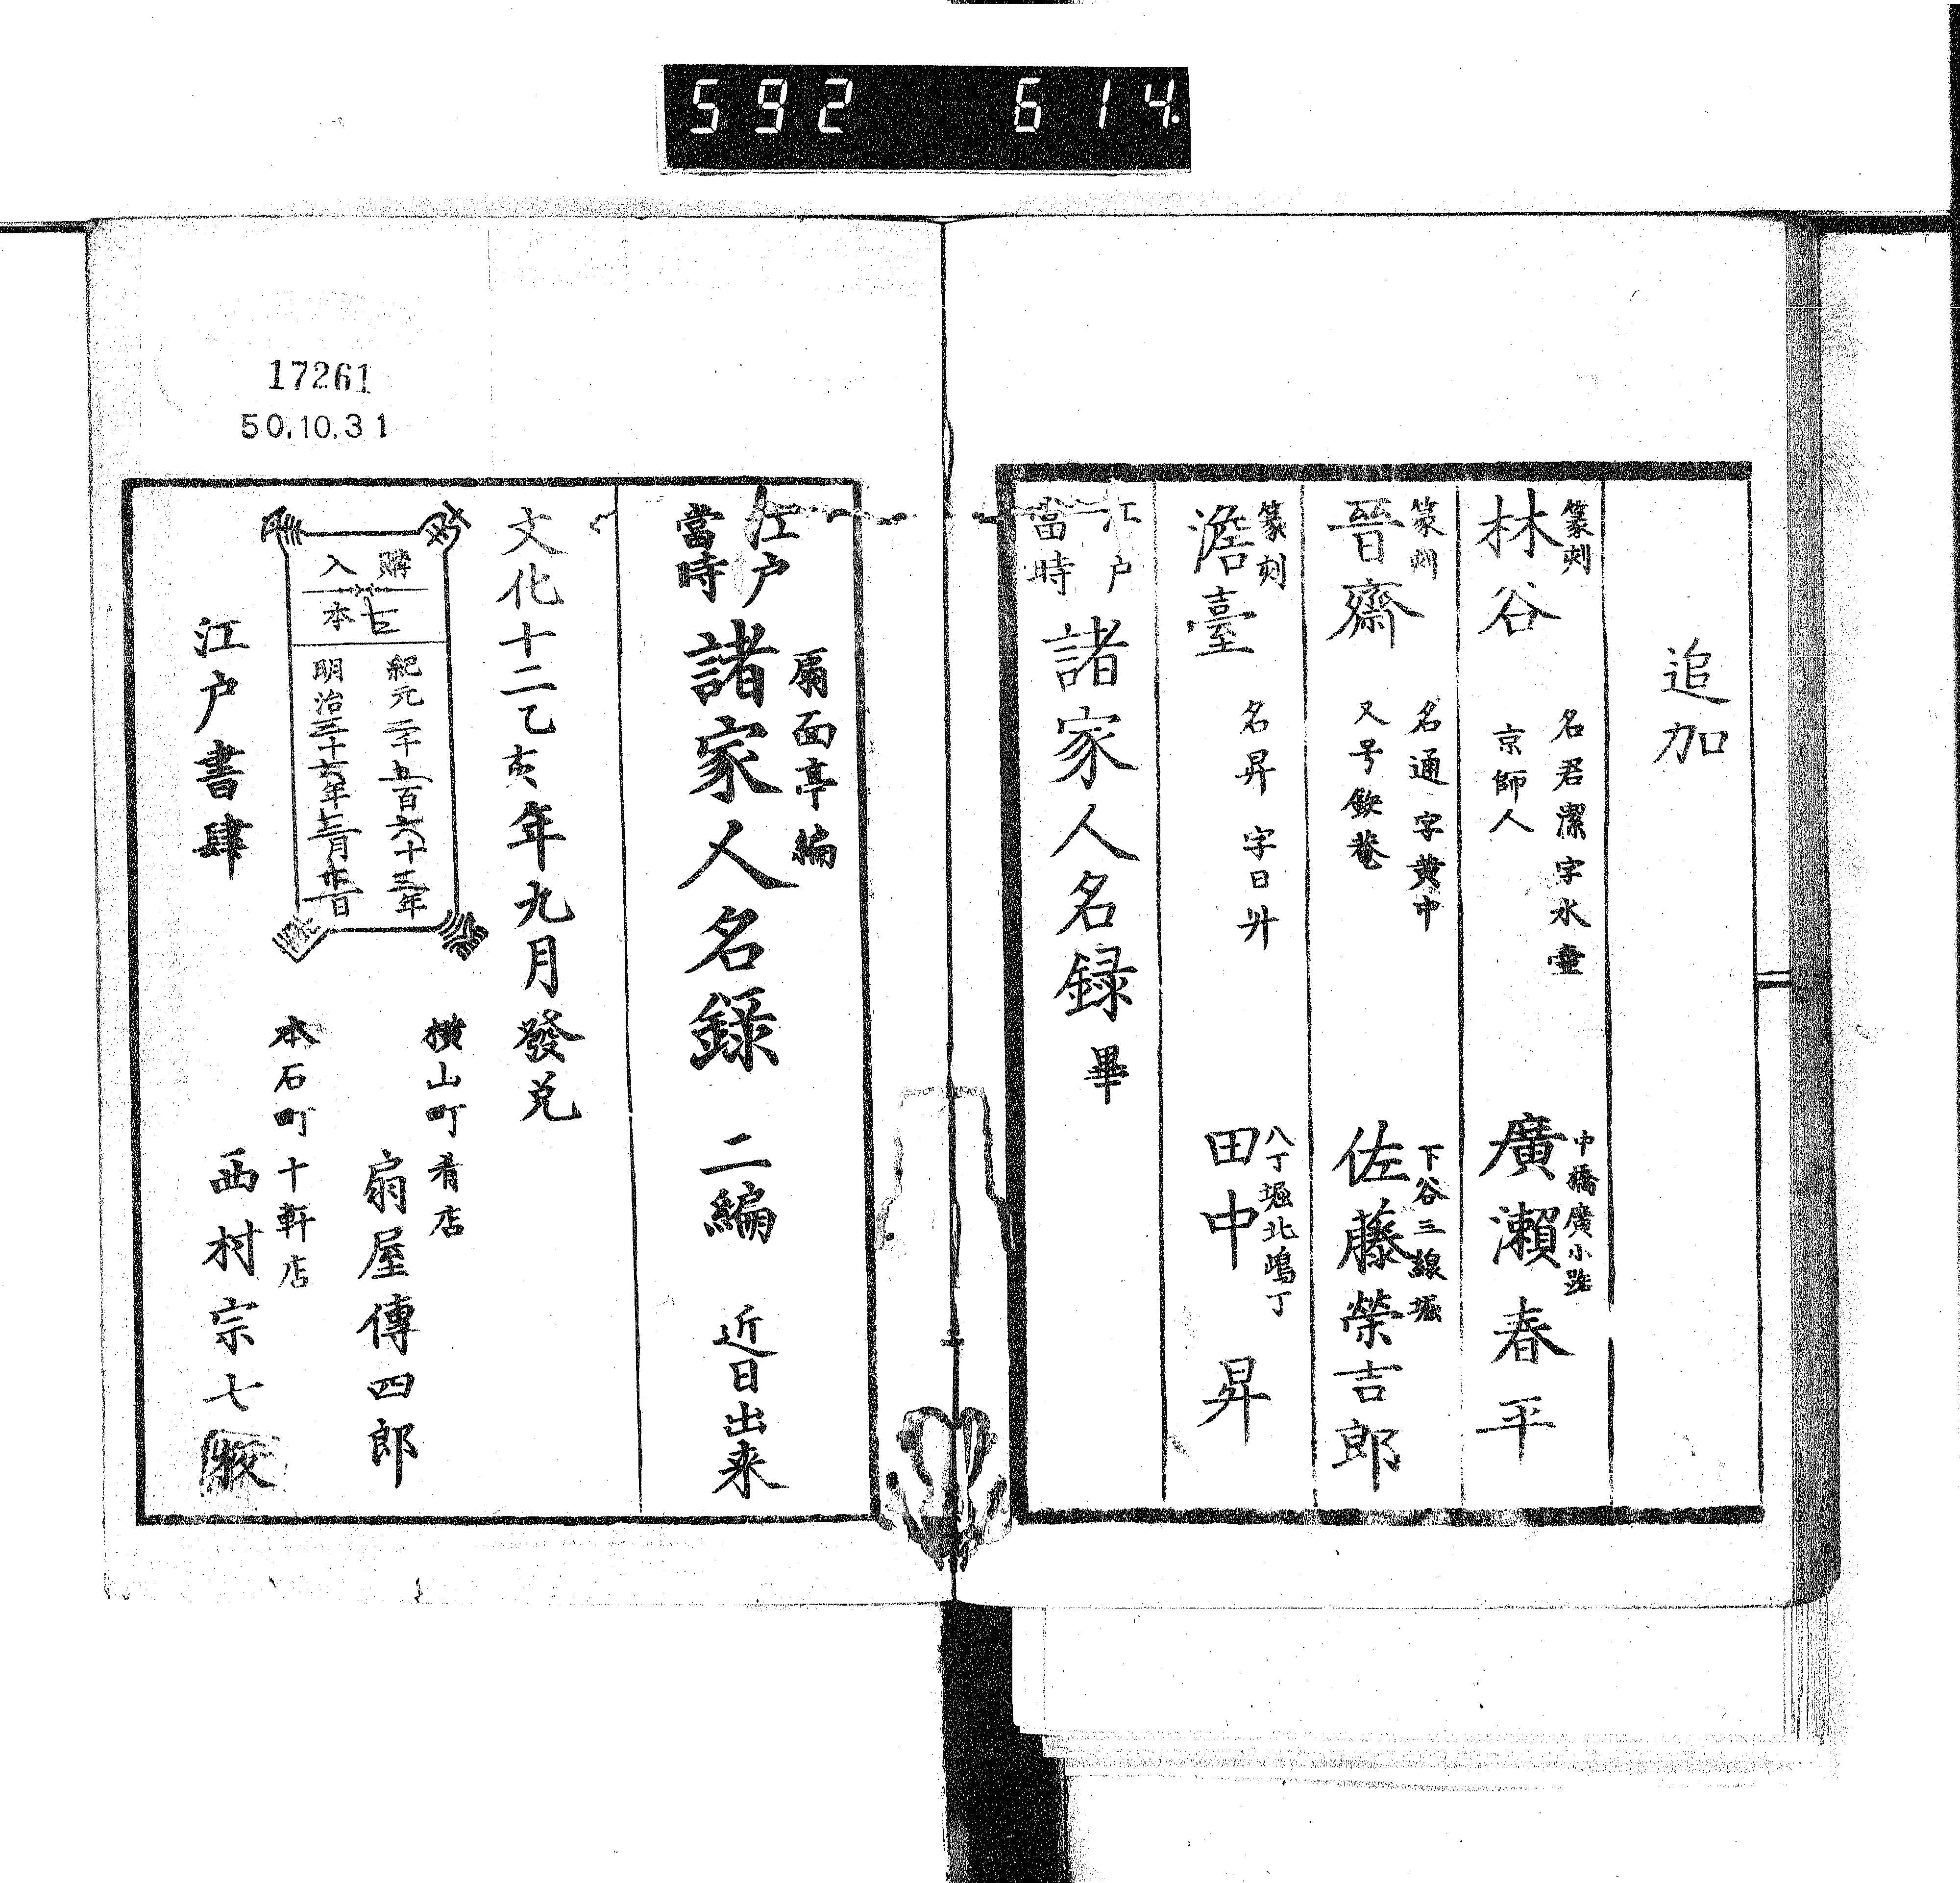 592 614.
追加
篆刻
林谷
名君潔字水壷
京師人
中橋廣小路
廣瀬春平
篆刻
晉齋
名通 字黄中
又号欽菴
下谷三線堀
佐藤榮吉郎
篆刻
澹臺
名昇 字日升
八丁堀北嶋丁
田中 昇
江戸
當時
諸家人名録 畢
17261
50.10.31
扇面亭編
江戸
當時
諸家人名録 二編 近日出来
文化十二乙亥年九月發兌
購入
古本
紀元二千五百六十三年
明治三十六年
江戸書肆
横山町肴店
扇屋傳四郎
本石町十軒店
西村宗七